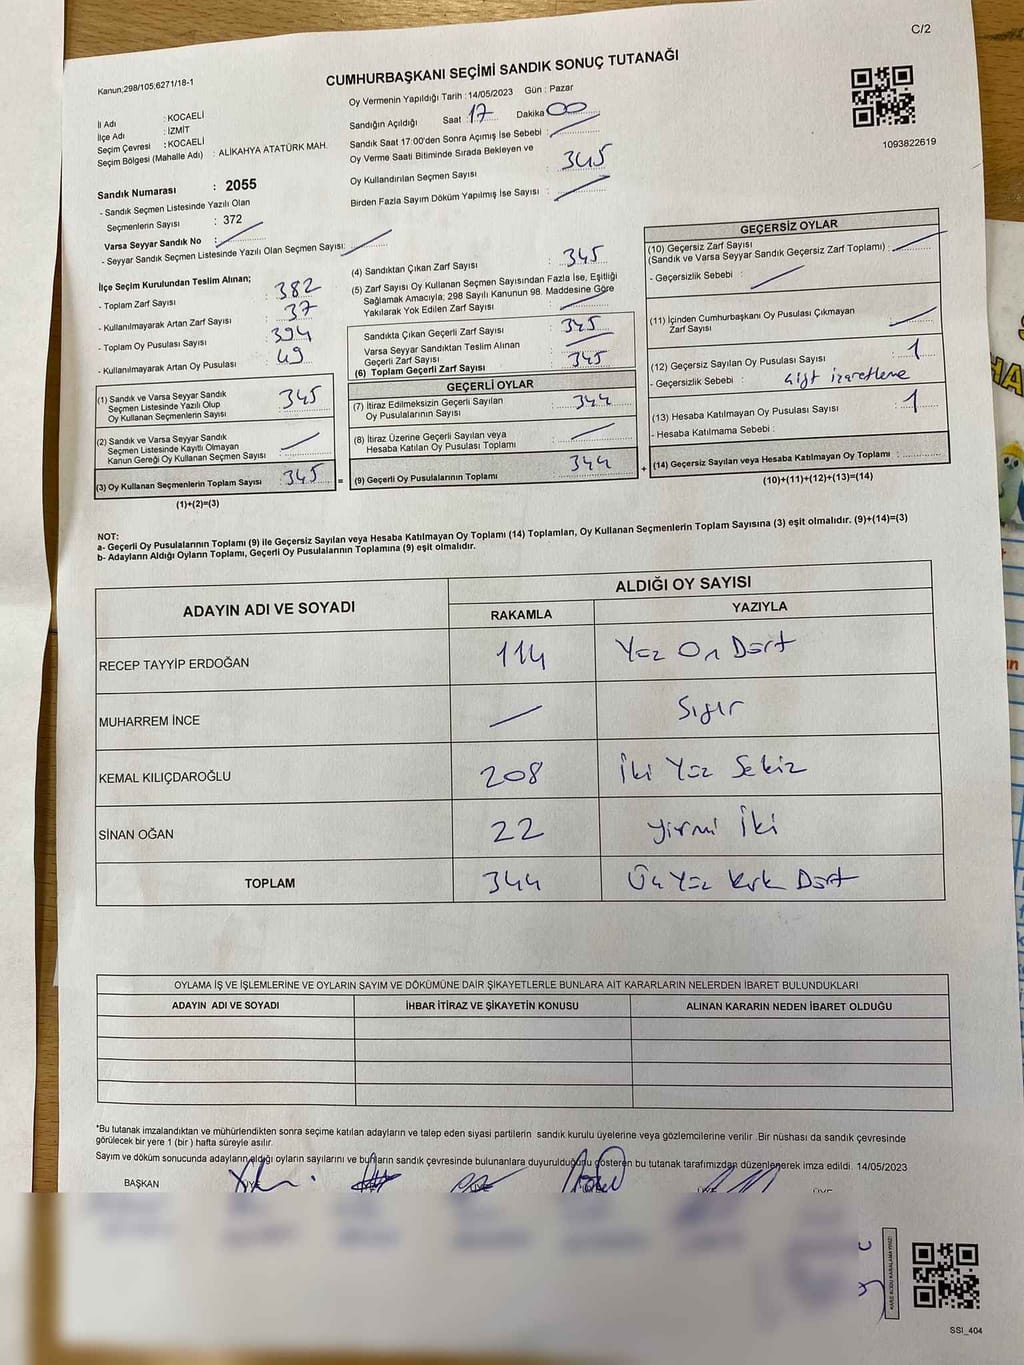 C/2
Kanun;298/105;6271/18-1
CUMHURBAŞKANI SEÇİMİ SANDIK SONUÇ TUTANAĞI
İl Adı : KOCAELİ
İlçe Adı : İZMİT
Seçim Çevresi : KOCAELİ
Seçim Bölgesi (Mahalle Adı) : ALİKAHYA ATATÜRK MAH.
Sandık Numarası : 2055
- Sandık Seçmen Listesinde Yazılı Olan
Seçmenlerin Sayısı : 372
Varsa Seyyar Sandık No :
- Seyyar Sandık Seçmen Listesinde Yazılı Olan Seçmen Sayısı:
Oy Vermenin Yapıldığı Tarih : 14/05/2023 Gün : Pazar
Sandığın Açıldığı Saat 17 Dakika 00
Sandık Saat 17:00'den Sonra Açımış İse Sebebi :
Oy Verme Saati Bitiminde Sırada Bekleyen ve
Oy Kullandırılan Seçmen Sayısı : 345
Birden Fazla Sayım Döküm Yapılmış İse Sayısı :
1093822619
İlçe Seçim Kurulundan Teslim Alınan;
- Toplam Zarf Sayısı : 382
- Kullanılmayarak Artan Zarf Sayısı : 37
- Toplam Oy Pusulası Sayısı : 394
- Kullanılmayarak Artan Oy Pusulası : 49
(1) Sandık ve Varsa Seyyar Sandık
Seçmen Listesinde Yazılı Olup
Oy Kullanan Seçmenlerin Sayısı : 345
(2) Sandık ve Varsa Seyyar Sandık
Seçmen Listesinde Kayıtlı Olmayan
Kanun Gereği Oy Kullanan Seçmen Sayısı :
(3) Oy Kullanan Seçmenlerin Toplam Sayısı : 345
(1)+(2)=(3)
=
(4) Sandıktan Çıkan Zarf Sayısı : 345
(5) Zarf Sayısı Oy Kullanan Seçmen Sayısından Fazla İse, Eşitliği
Sağlamak Amacıyla; 298 Sayılı Kanunun 98. Maddesine Göre
Yakılarak Yok Edilen Zarf Sayısı :
Sandıkta Çıkan Geçerli Zarf Sayısı : 345
Varsa Seyyar Sandıktan Teslim Alınan
Geçerli Zarf Sayısı :
(6) Toplam Geçerli Zarf Sayısı : 345
GEÇERLİ OYLAR
(7) İtiraz Edilmeksizin Geçerli Sayılan
Oy Pusulalarının Sayısı : 344
(8) İtiraz Üzerine Geçerli Sayılan veya
Hesaba Katılan Oy Pusulası Toplamı :
(9) Geçerli Oy Pusulalarının Toplamı : 344
+
GEÇERSİZ OYLAR
(10) Geçersiz Zarf Sayısı
(Sandık ve Varsa Seyyar Sandık Geçersiz Zarf Toplamı) :
- Geçersizlik Sebebi :
(11) İçinden Cumhurbaşkanı Oy Pusulası Çıkmayan
Zarf Sayısı :
(12) Geçersiz Sayılan Oy Pusulası Sayısı : 1
- Geçersizlik Sebebi : Çift işaretleme
(13) Hesaba Katılmayan Oy Pusulası Sayısı : 1
- Hesaba Katılmama Sebebi :
(14) Geçersiz Sayılan veya Hesaba Katılmayan Oy Toplamı :
(10)+(11)+(12)+(13)=(14)
NOT:
a- Geçerli Oy Pusulalarının Toplamı (9) ile Geçersiz Sayılan veya Hesaba Katılmayan Oy Toplamı (14) Toplamları, Oy Kullanan Seçmenlerin Toplam Sayısına (3) eşit olmalıdır. (9)+(14)=(3)
b- Adayların Aldığı Oyların Toplamı, Geçerli Oy Pusulalarının Toplamına (9) eşit olmalıdır.
ADAYIN ADI VE SOYADI
ALDIĞI OY SAYISI
RAKAMLA YAZIYLA
RECEP TAYYİP ERDOĞAN 114 Yüz On Dört
MUHARREM İNCE Sıfır
KEMAL KILIÇDAROĞLU 208 İki Yüz Sekiz
SİNAN OĞAN 22 Yirmi İki
TOPLAM 344 Üç Yüz Kırk Dört
OYLAMA İŞ VE İŞLEMLERİNE VE OYLARIN SAYIM VE DÖKÜMÜNE DAİR ŞİKAYETLERLE BUNLARA AİT KARARLARIN NELERDEN İBARET BULUNDUKLARI
ADAYIN ADI VE SOYADI İHBAR İTİRAZ VE ŞİKAYETİN KONUSU ALINAN KARARIN NEDEN İBARET OLDUĞU
*Bu tutanak imzalandıktan ve mühürlendikten sonra seçime katılan adayların ve talep eden siyasi partilerin sandık kurulu üyelerine veya gözlemcilerine verilir .Bir nüshası da sandık çevresinde
görülecek bir yere 1 (bir ) hafta süreyle asılır.
Sayım ve döküm sonucunda adayların aldığı oyların sayılarını ve bunların sandık çevresinde bulunanlara duyurulduğunu gösteren bu tutanak tarafımızdan düzenlenerek imza edildi. 14/05/2023
BAŞKAN ÜYE ÜYE ÜYE ÜYE ÜYE
SSI_404